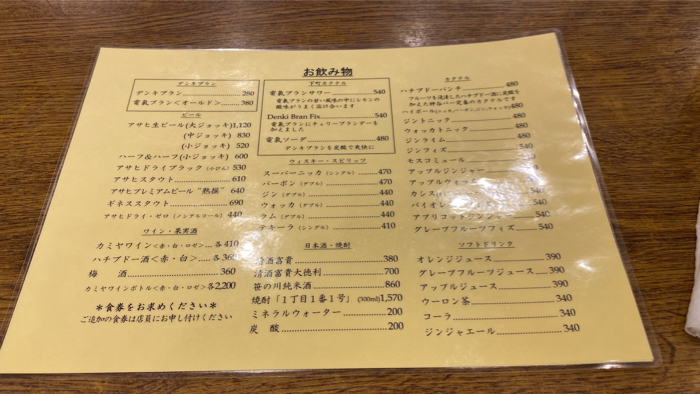 お飲み物
デンキブラン
デンキブラン 280
電氣ブラン<オールド> 380
ビール
アサヒ生ビール(大ジョッキ) 1,120
(中ジョッキ) 830
(小ジョッキ) 520
ハーフ&ハーフ(小ジョッキ) 600
アサヒドライブラック(小びん) 530
アサヒスタウト 610
アサヒプレミアムビール"熟撰" 640
ギネススタウト 690
アサヒドライ・ゼロ(ノンアルコール) 440
ワイン・果実酒
カミヤワイン<赤・白・ロゼ> 各 410
ハチブドー酒<赤・白> 各 360
梅酒 360
カミヤワインボトル<赤・白・ロゼ> 各2,200
*食券をお求めください*
ご追加の食券は店員にお申し付けください
下町カクテル
電氣ブランサワー 540
電氣ブランの甘い風味の中にレモンの
酸味がうまく溶け合います
Denki Bran Fix 540
電氣ブランにチェリーブランデーを
加えました
電氣ソーダ 480
デンキブランを炭酸で爽快に
ウィスキー・スピリッツ
スーパーニッカ(シングル) 470
バーボン(ダブル) 470
ジン(ダブル) 440
ウォッカ(ダブル) 440
ラム(ダブル) 440
テキーラ(シングル) 410
日本酒・焼酎
清酒富貴 380
清酒富貴大徳利 700
笹の川純米酒 860
焼酎「1丁目1番1号」(300ml) 1,570
ミネラルウォーター 200
炭酸 200
カクテル
ハチブドーパンチ 480
フルーツを浸漬したハチブドー酒に炭酸を
加えた神谷バー定番のカクテルです
ハイボール 480
ジントニック 480
ウォッカトニック 480
ジンライム 480
ジンフィズ 540
モスコミュール
アップルジンジャー
アップルウィ
カシス
バイオレ
アプリコットジンフィズ 540
グレープフルーツフィズ 540
ソフトドリンク
オレンジジュース 390
グレープフルーツジュース 390
アップルジュース 390
ウーロン茶 340
コーラ 340
ジンジャエール 340